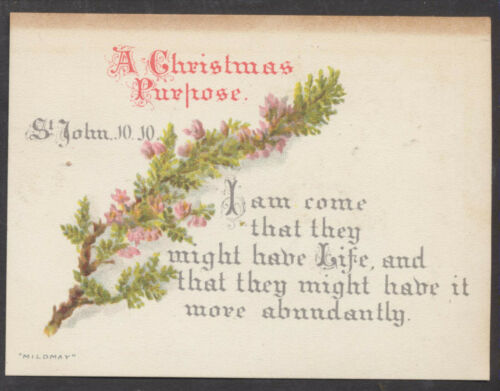 A Christmas
Purpose.
St John. 10. 10.
I am come
that they
might have Life, and
that they might have it
more abundantly.
"MILDMAY"